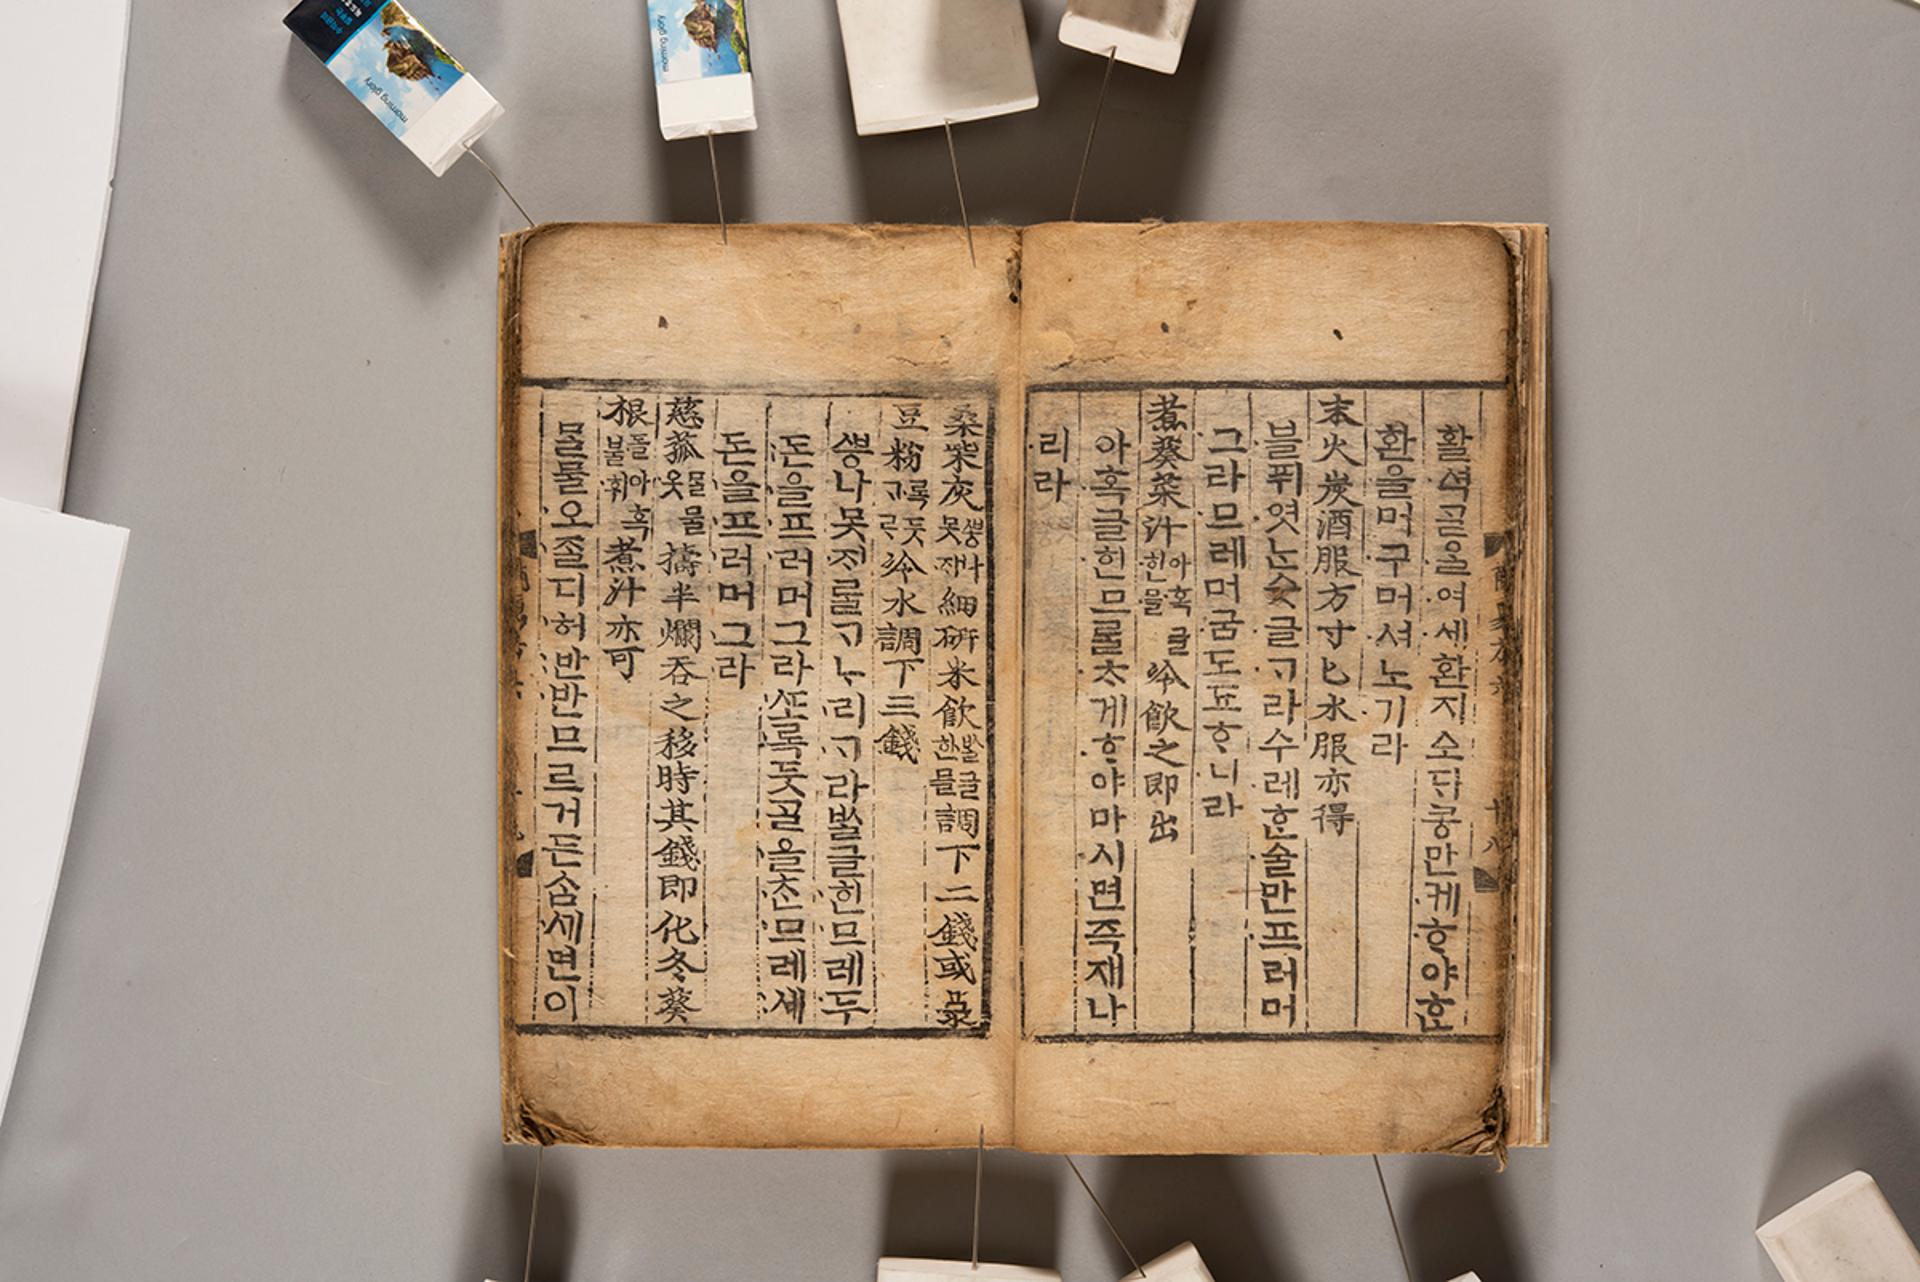 활셕ᄀᆞᆯ올여세환지소ᄃᆡ콩만케ᄒᆞ야ᄒᆞᆫ
환을머구머셔노기라
末火炭酒服方寸匕水服亦得
블퓌엿ᄂᆞᆫ숫글ᄀᆞ라수레ᄒᆞᆫ술만프러머
그라므레머굼도됴ᄒᆞ니라
煮葵菜汁아혹글힌믈冷飮之即出
아혹글힌므를ᄎᆞ게ᄒᆞ야마시면즉재나
리라
桑柴灰ᄲᅩᆼ나못ᄌᆡ細硏米飮ᄡᆞᆯ글힌믈調下二錢或菉
豆粉록둣ᄀᆞᄅᆞ冷水調下三錢
ᄲᅩᆼ나못ᄌᆡ를ᄀᆞᄂᆞ리ᄀᆞ라ᄡᆞᆯ글힌므레두
돈을프러머그라ᄯᅩ록둣ᄀᆞᆯ을ᄎᆞᆫ므레세
돈을프러머그라
慈菰믈물옷擣半爛呑之移時其錢即化冬葵
根돌아혹불휘煮汁亦可
믈물오졸디허반반므르거든ᄉᆞᆷ세면이
morning glory
morning glory